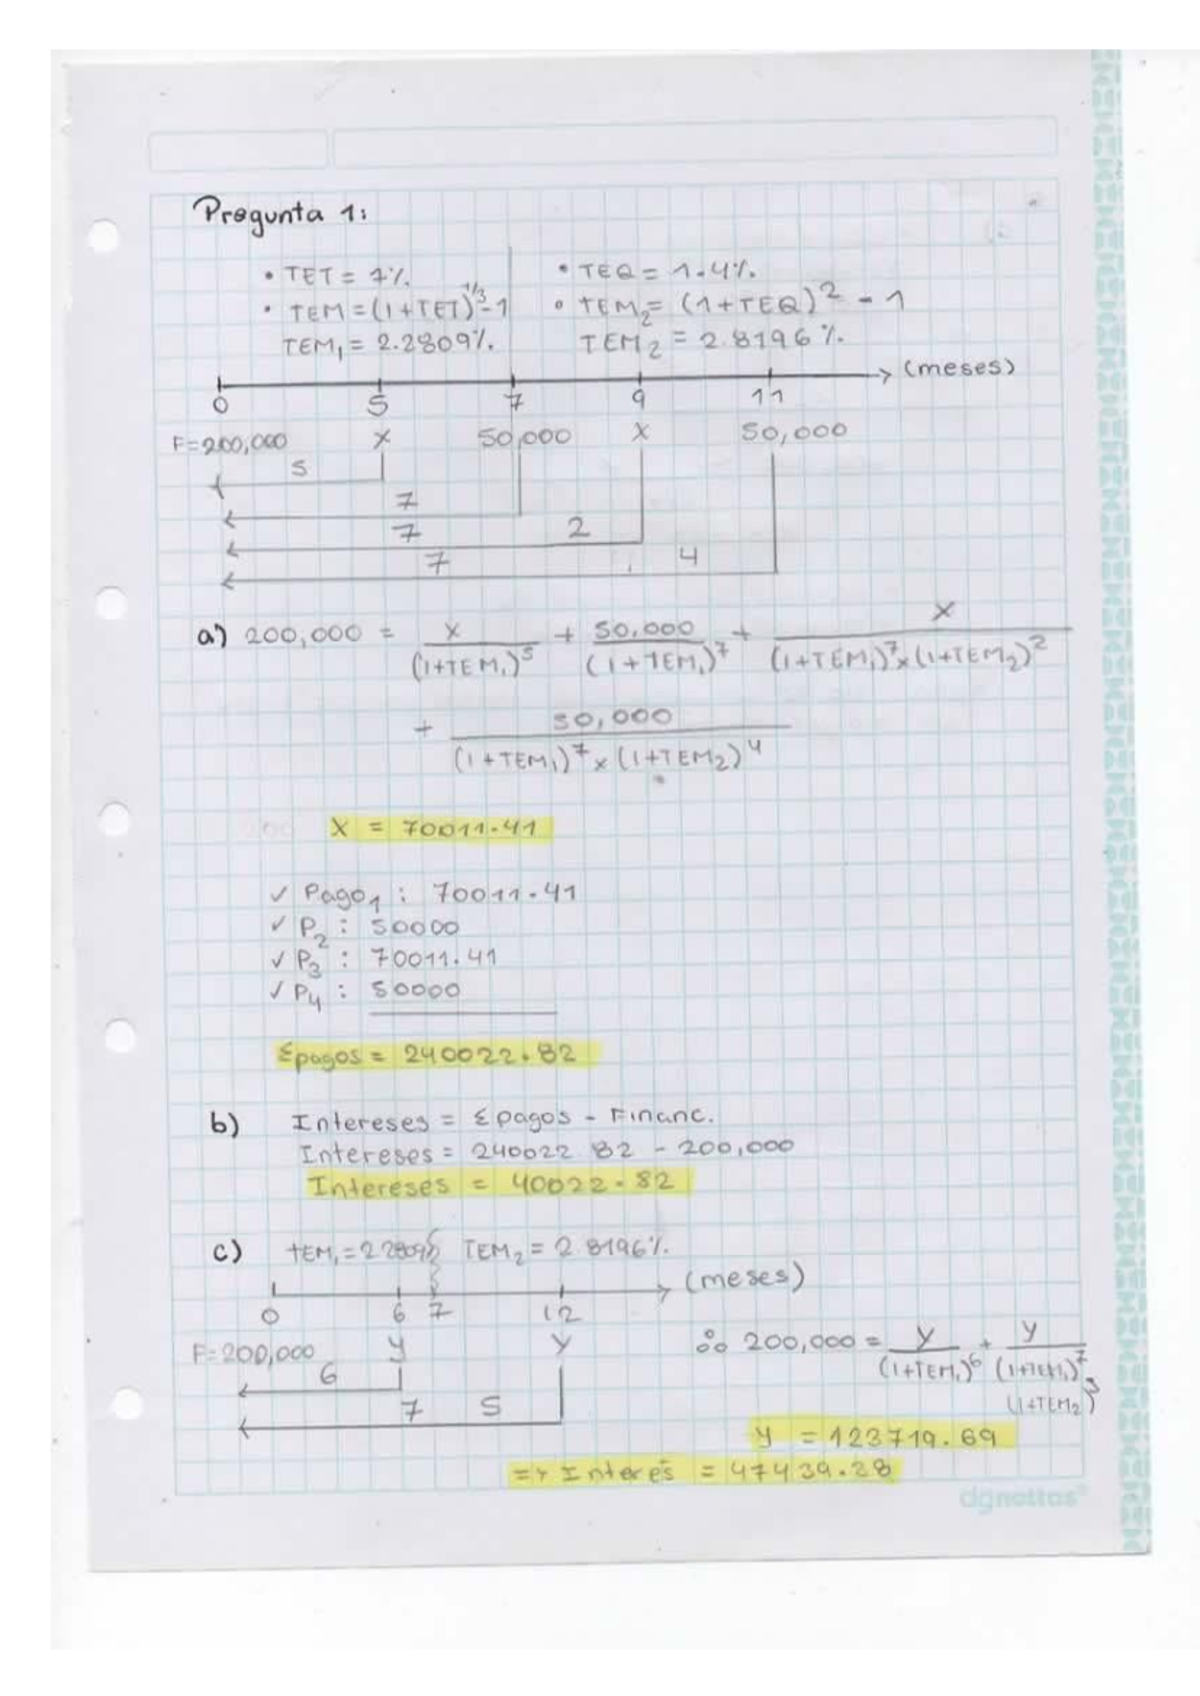 Pregunta 1:
• TET = 7%.
• TEQ = 1.4%.
• TEM = (1+TET)^1/3 - 1
• TEM₂ = (1+TEQ)² - 1
TEM₁ = 2.2809%.
TEM₂ = 2.8196%.
(meses)
0 5 7 9 11
F=200,000 X 50,000 X 50,000
5
7
7 2
7 4
a) 200,000 = X/(1+TEM₁)⁵ + 50,000/(1+TEM₁)⁷ + X/(1+TEM₁)⁷x(1+TEM₂)²
+ 50,000/(1+TEM₁)⁷x(1+TEM₂)⁴
X = 70011.41
✓ Pago₁ : 70011.41
✓ P₂ : 50000
✓ P₃ : 70011.41
✓ P₄ : 50000
Σpagos = 240022.82
b) Intereses = Σpagos - Financ.
Intereses = 240022.82 - 200,000
Intereses = 40022.82
c) TEM₁=2.2809% TEM₂ = 2.8196%.
(meses)
0 6 7 12
F=200,000 y y
6
7 5
∴ 200,000 = y/(1+TEM₁)⁶ + y/(1+TEM₁)⁷(1+TEM₂)⁵
y = 123719.69
=> Interés = 47439.28
dgnottas